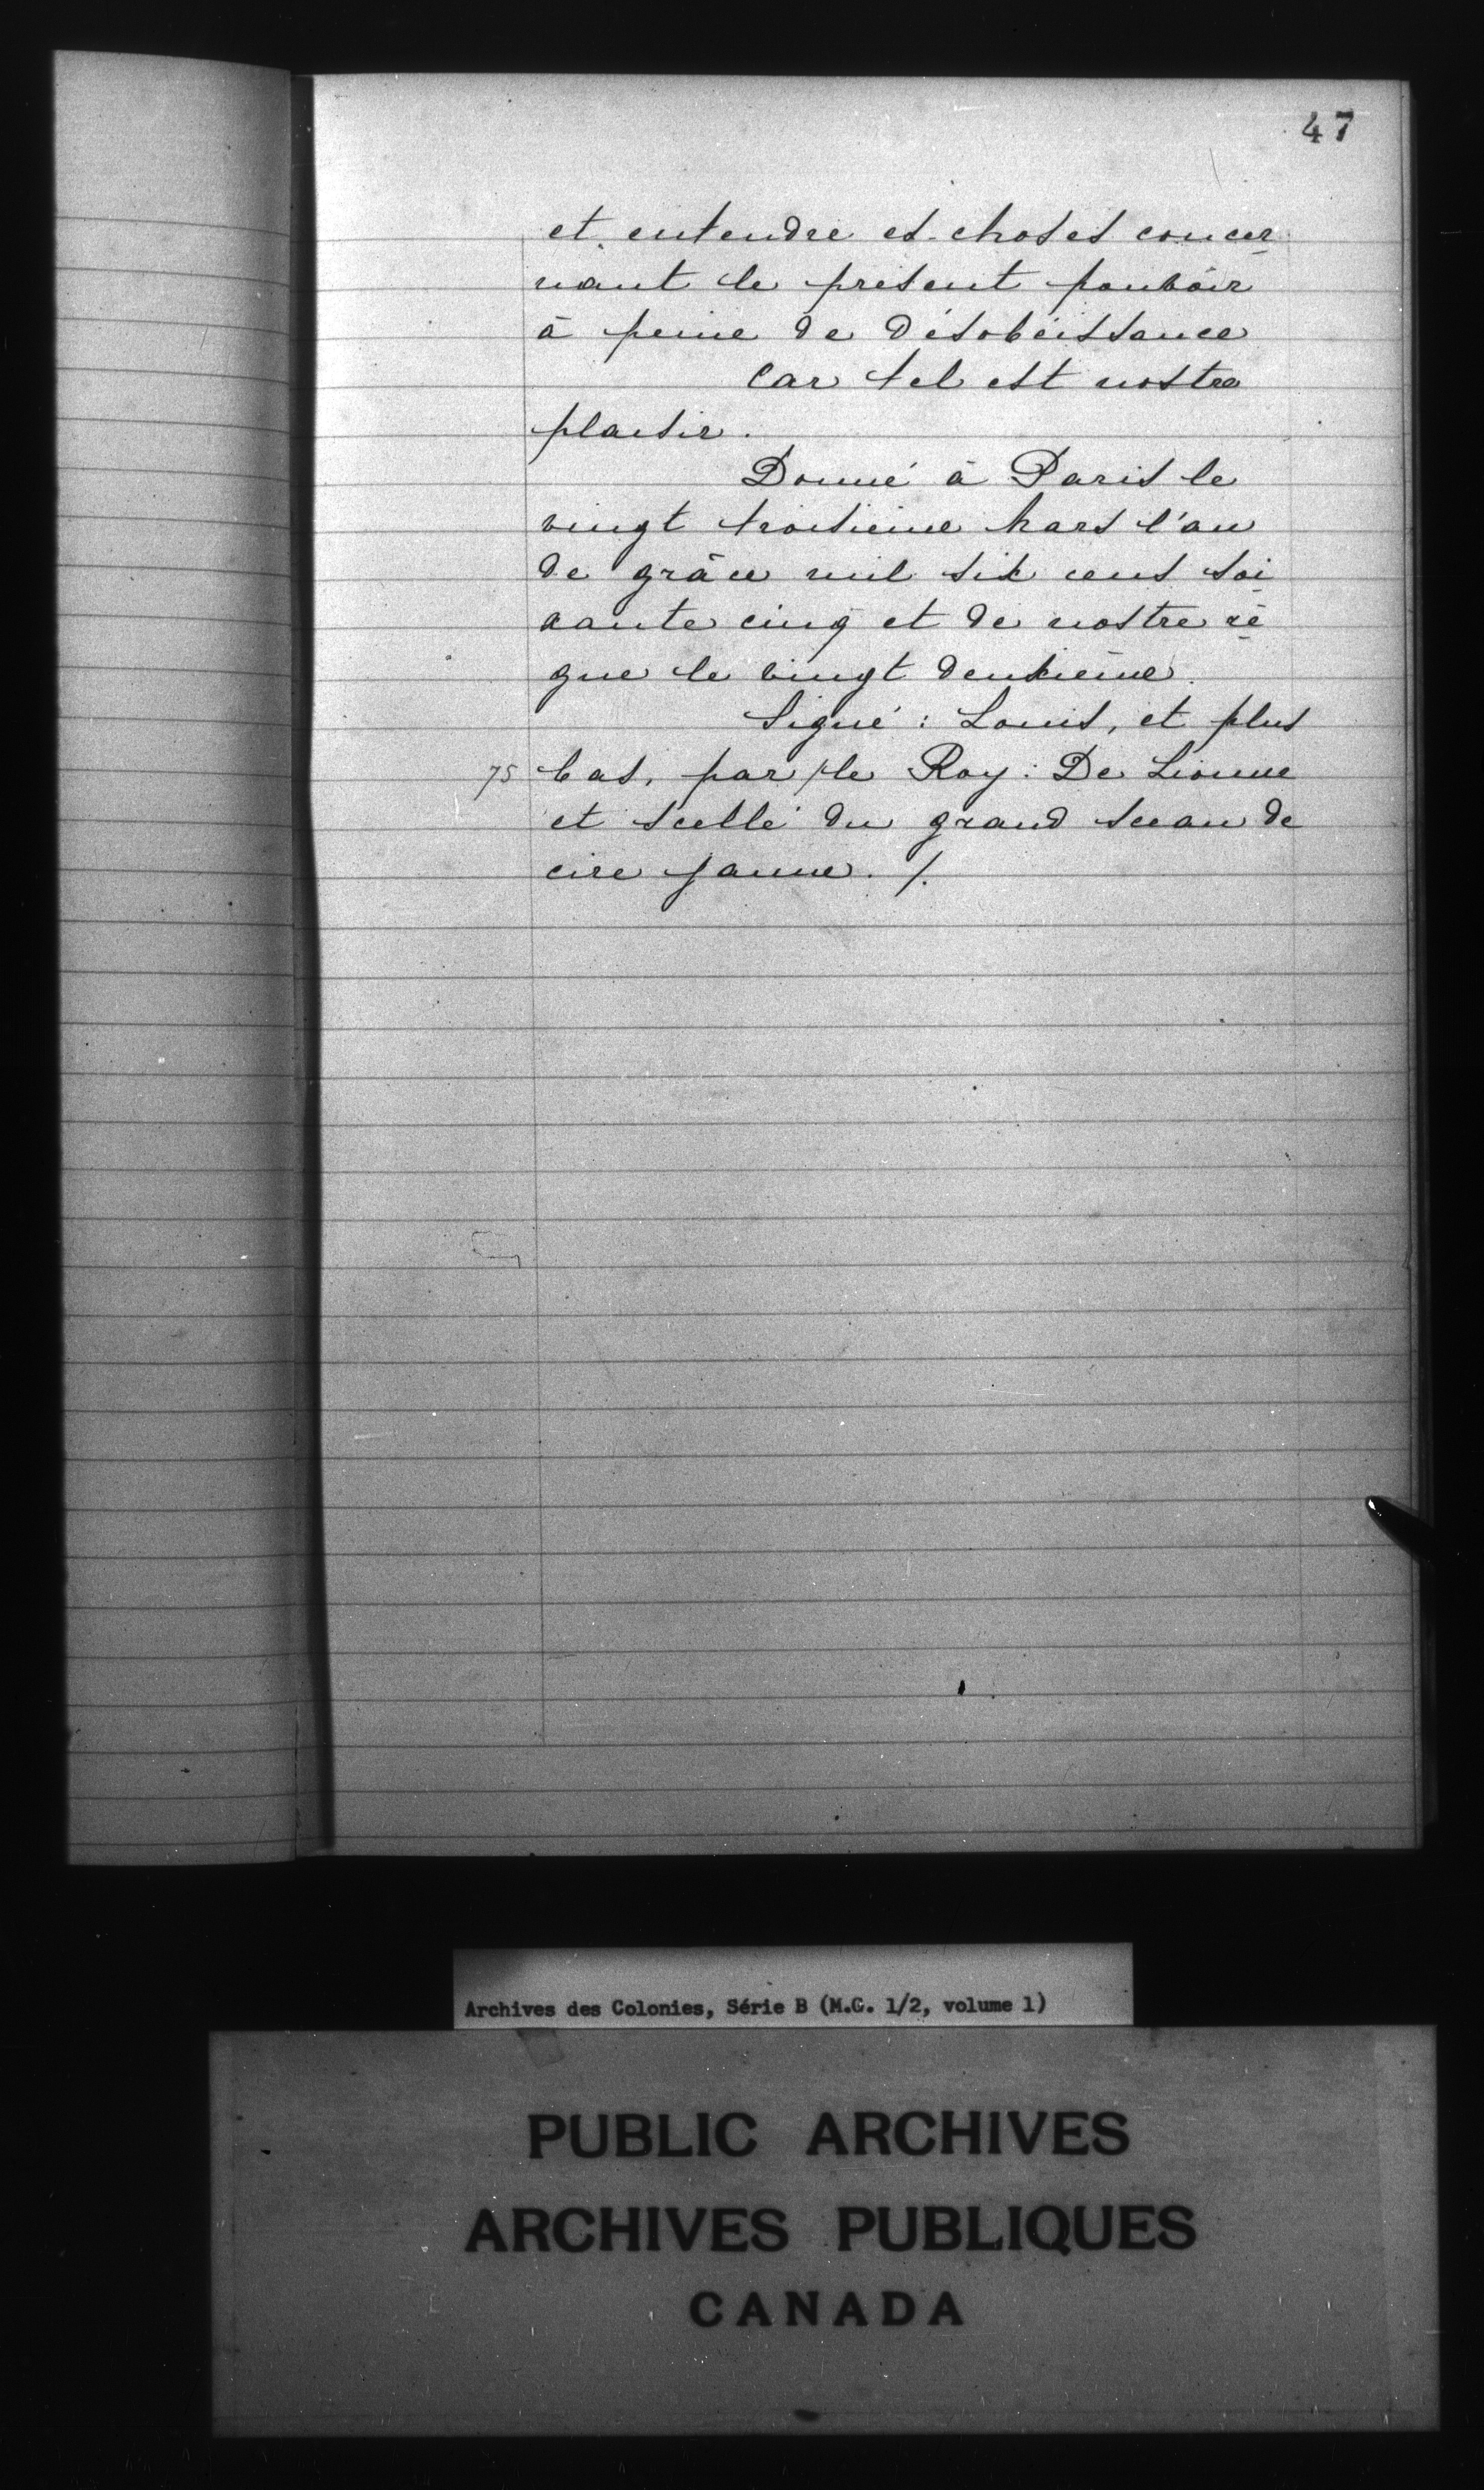 47
et entendre es choses concer
nant le présent pouvoir
à peine de désobéissance
Car tel est nostre
plaisir.
Donné à Paris le
vingt troisieme Mars l'an
de grâce mil six cens soi
xante cinq et de nostre rè
gne le vingt deuxième.
Signé : Louis, et plus
75 bas, par / le Roy : De Lionne
et scellé du grand sceau de
cire jaune. /.
Archives des Colonies, Série B (M.G. 1/2, volume 1)
PUBLIC ARCHIVES
ARCHIVES PUBLIQUES
CANADA